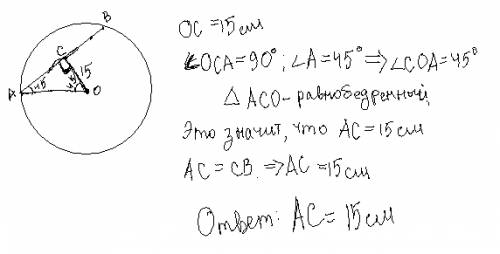 B
C
15
A
45
45
O
OC = 15 см
∠OCA = 90°; ∠A = 45° ⟹ ∠COA = 45°
△ ACO - равнобедренный,
Это значит, что AC = 15 см
AC = CB. ⟹ AC = 15 см
Ответ: AC = 15 см